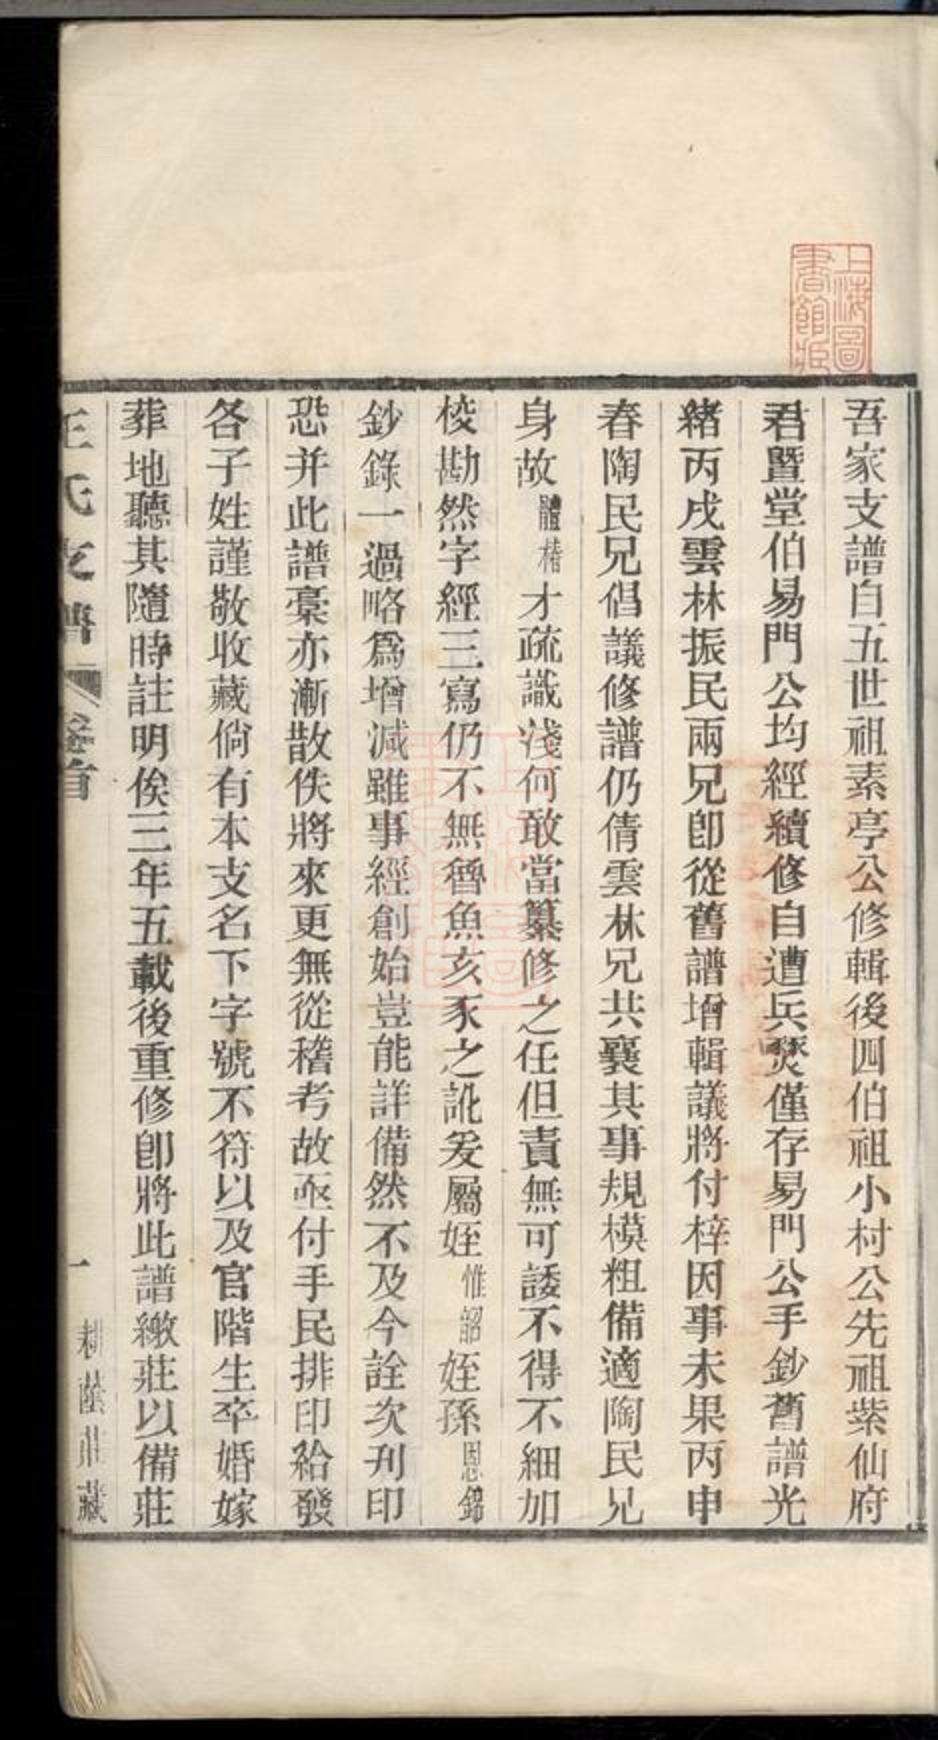 上海圖
書館藏
吾家支譜自五世祖素亭公修輯後四伯祖小村公先祖紫仙府
君暨堂伯易門公均經續修自遭兵燹僅存易門公手鈔舊譜光
緒丙戌雲林振民兩兄卽從舊譜增輯議將付梓因事未果丙申
春陶民兄倡議修譜仍倩雲林兄共襄其事規模粗備適陶民兄
身故體椿才疏識淺何敢當纂修之任但責無可諉不得不細加
校勘然字經三寫仍不無魯魚亥豕之訛爰屬姪惟韶姪孫恩錦
鈔錄一過略爲增減雖事經創始豈能詳備然不及今詮次刋印
恐并此譜稾亦漸散佚將來更無從稽考故亟付手民排印給發
各子姓謹敬收藏倘有本支名下字號不符以及官階生卒婚嫁
葬地聽其隨時註明俟三年五載後重修卽將此譜繳莊以備莊
王氏支譜 卷首 一 耕蔭莊藏